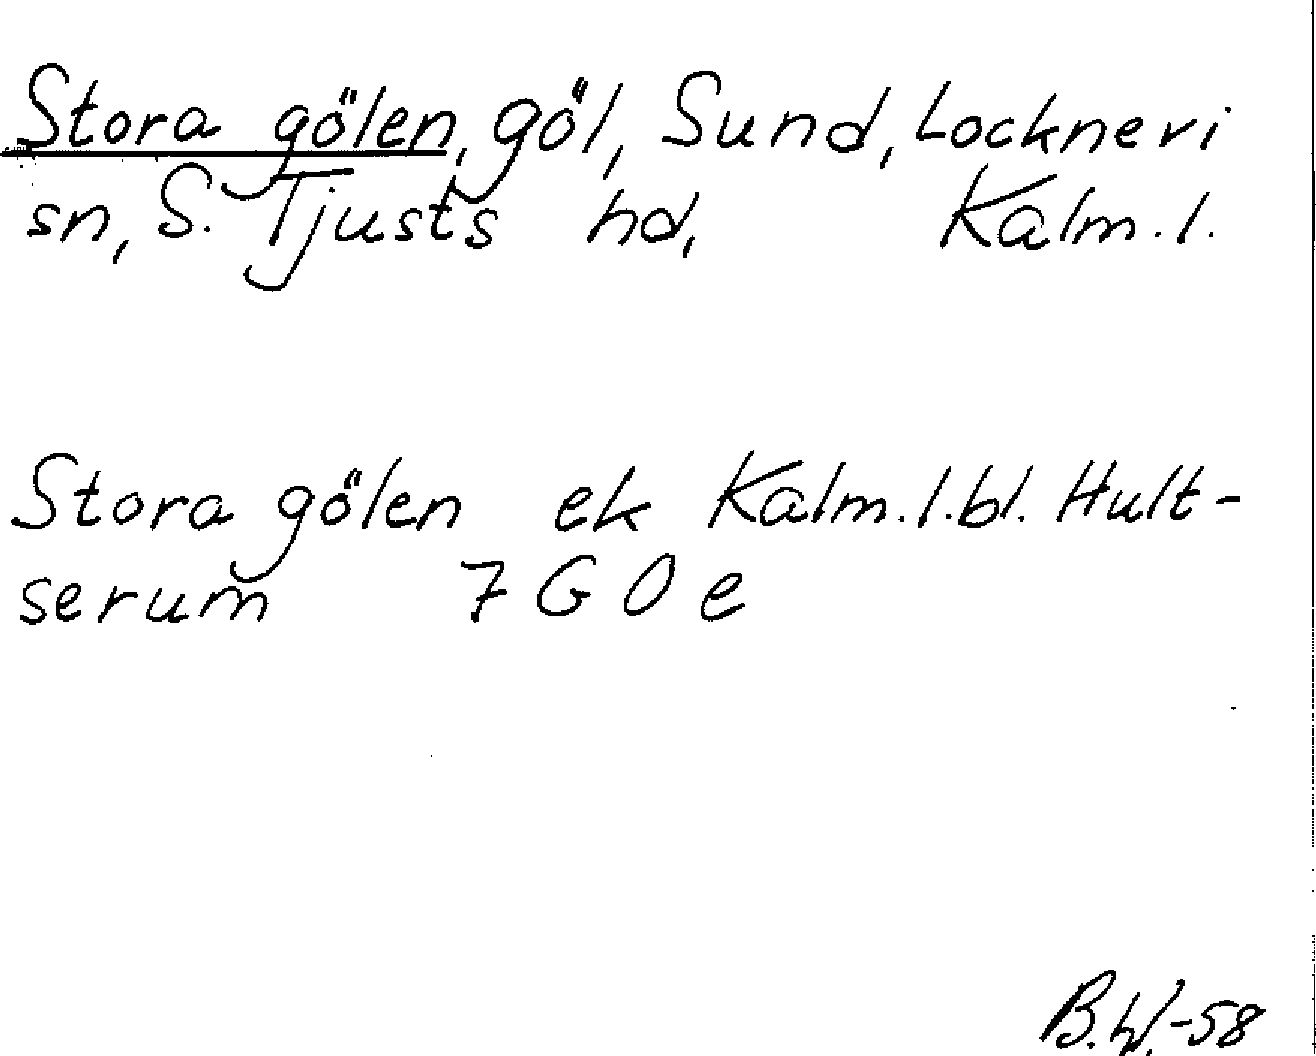 Stora gölen, göl, Sund, Lockneri
sn, S. Tjusts hd, Kalm. l.
Stora gölen ek Kalm. l. bl. Hult-
serum 7 G O e
B.W.-58